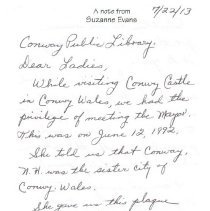 7/22/13
A note from
Suzanne Evans
Conway Public Library,
Dear Ladies,
While visiting Conwy Castle
in Conwy Wales, we had the
privilege of meeting the Mayor.
This was on June 12, 1992.
She told us that Conway,
N.H. was the sister city of
Conwy, Wales.
She gave us this plaque